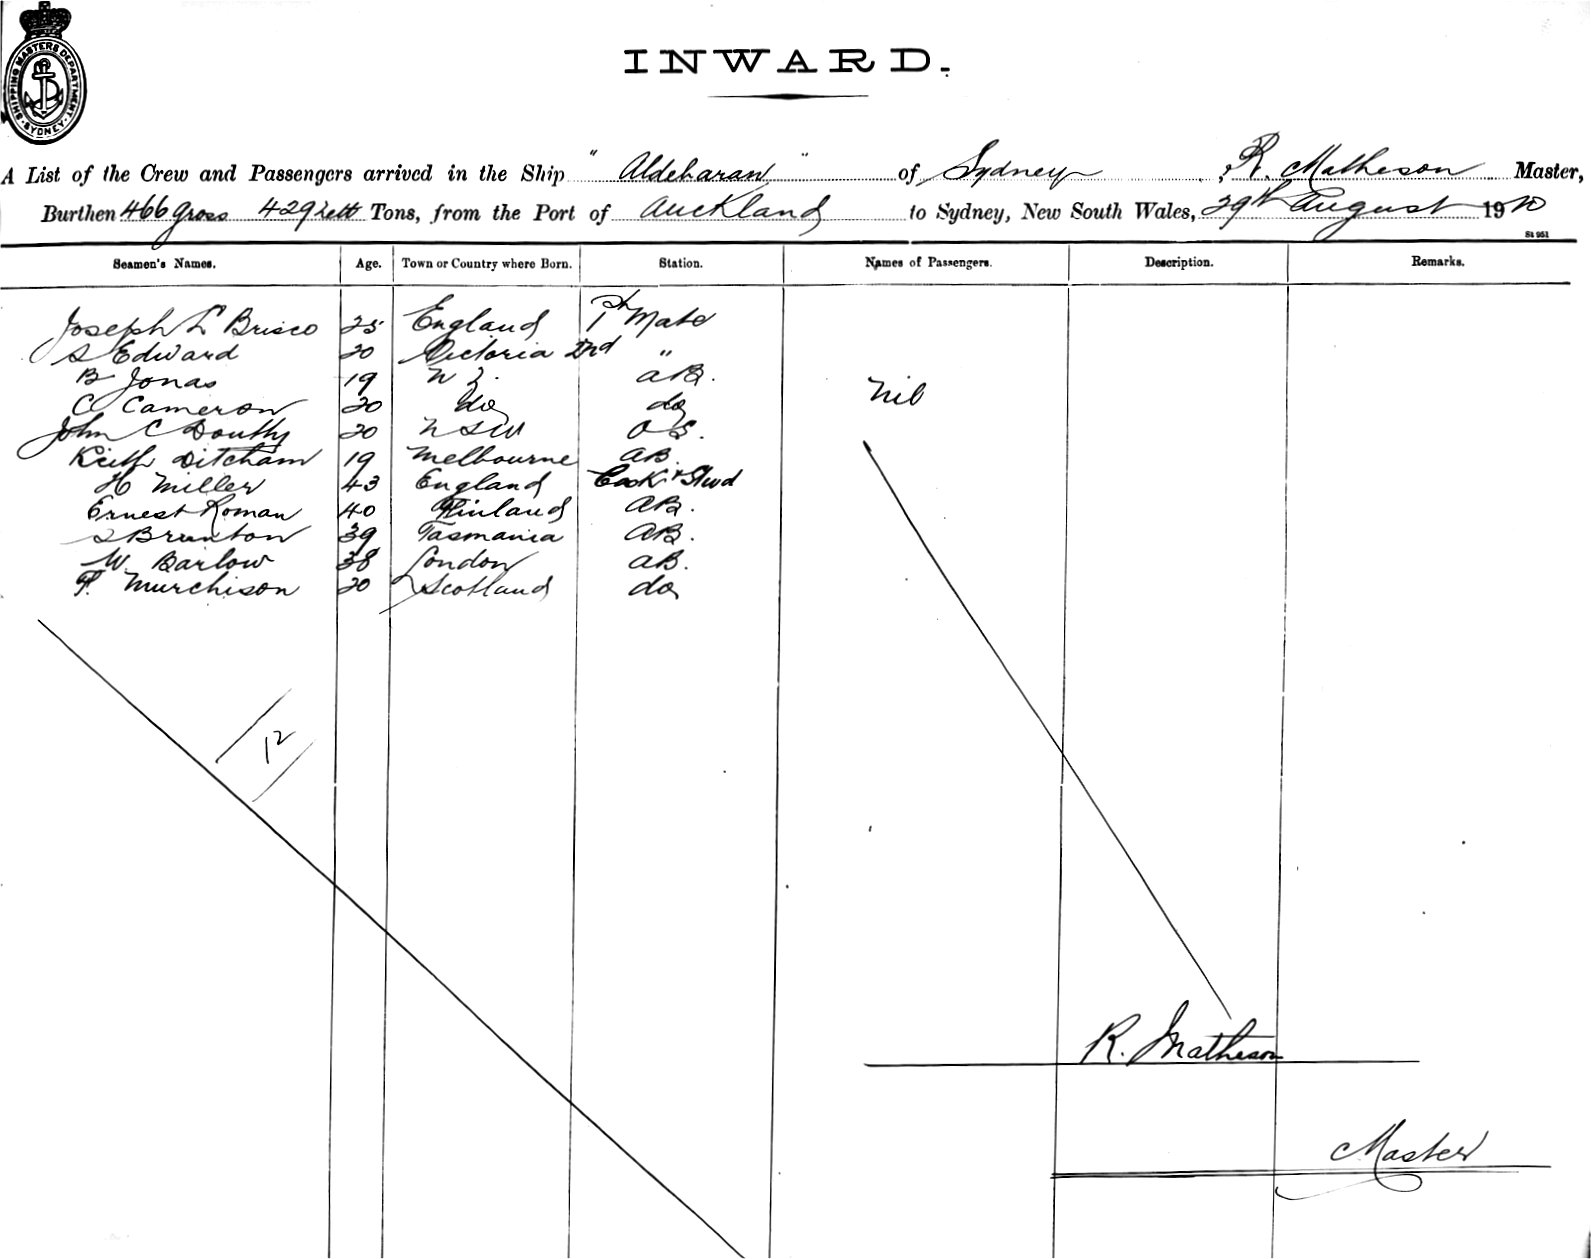 SHIPPING MASTERS DEPARTMENT. SYDNEY.
INWARD.
A List of the Crew and Passengers arrived in the Ship "Aldebaran" of Sydney, R. Matheson Master,
Burthen 466 gross 429 nett Tons, from the Port of Auckland to Sydney, New South Wales, 29th August 1920
St 951
Seamen's Names. Age. Town or Country where Born. Station. Names of Passengers. Description. Remarks.
Joseph L Brisco 25 England 1st Mate
S Edward 20 Victoria 2nd "
B Jonas 19 N Z. AB.
Nil
C Cameron 20 do do
John C Douthy 20 NSW OS.
Keith Ditcham 19 Melbourne AB.
H Miller 43 England Cook & Stwd
Ernest Roman 40 Finland AB.
Brunton 39 Tasmania AB.
W. Barlow 38 London AB.
F. Murchison 20 Scotland do
12
R. Matheson
Master